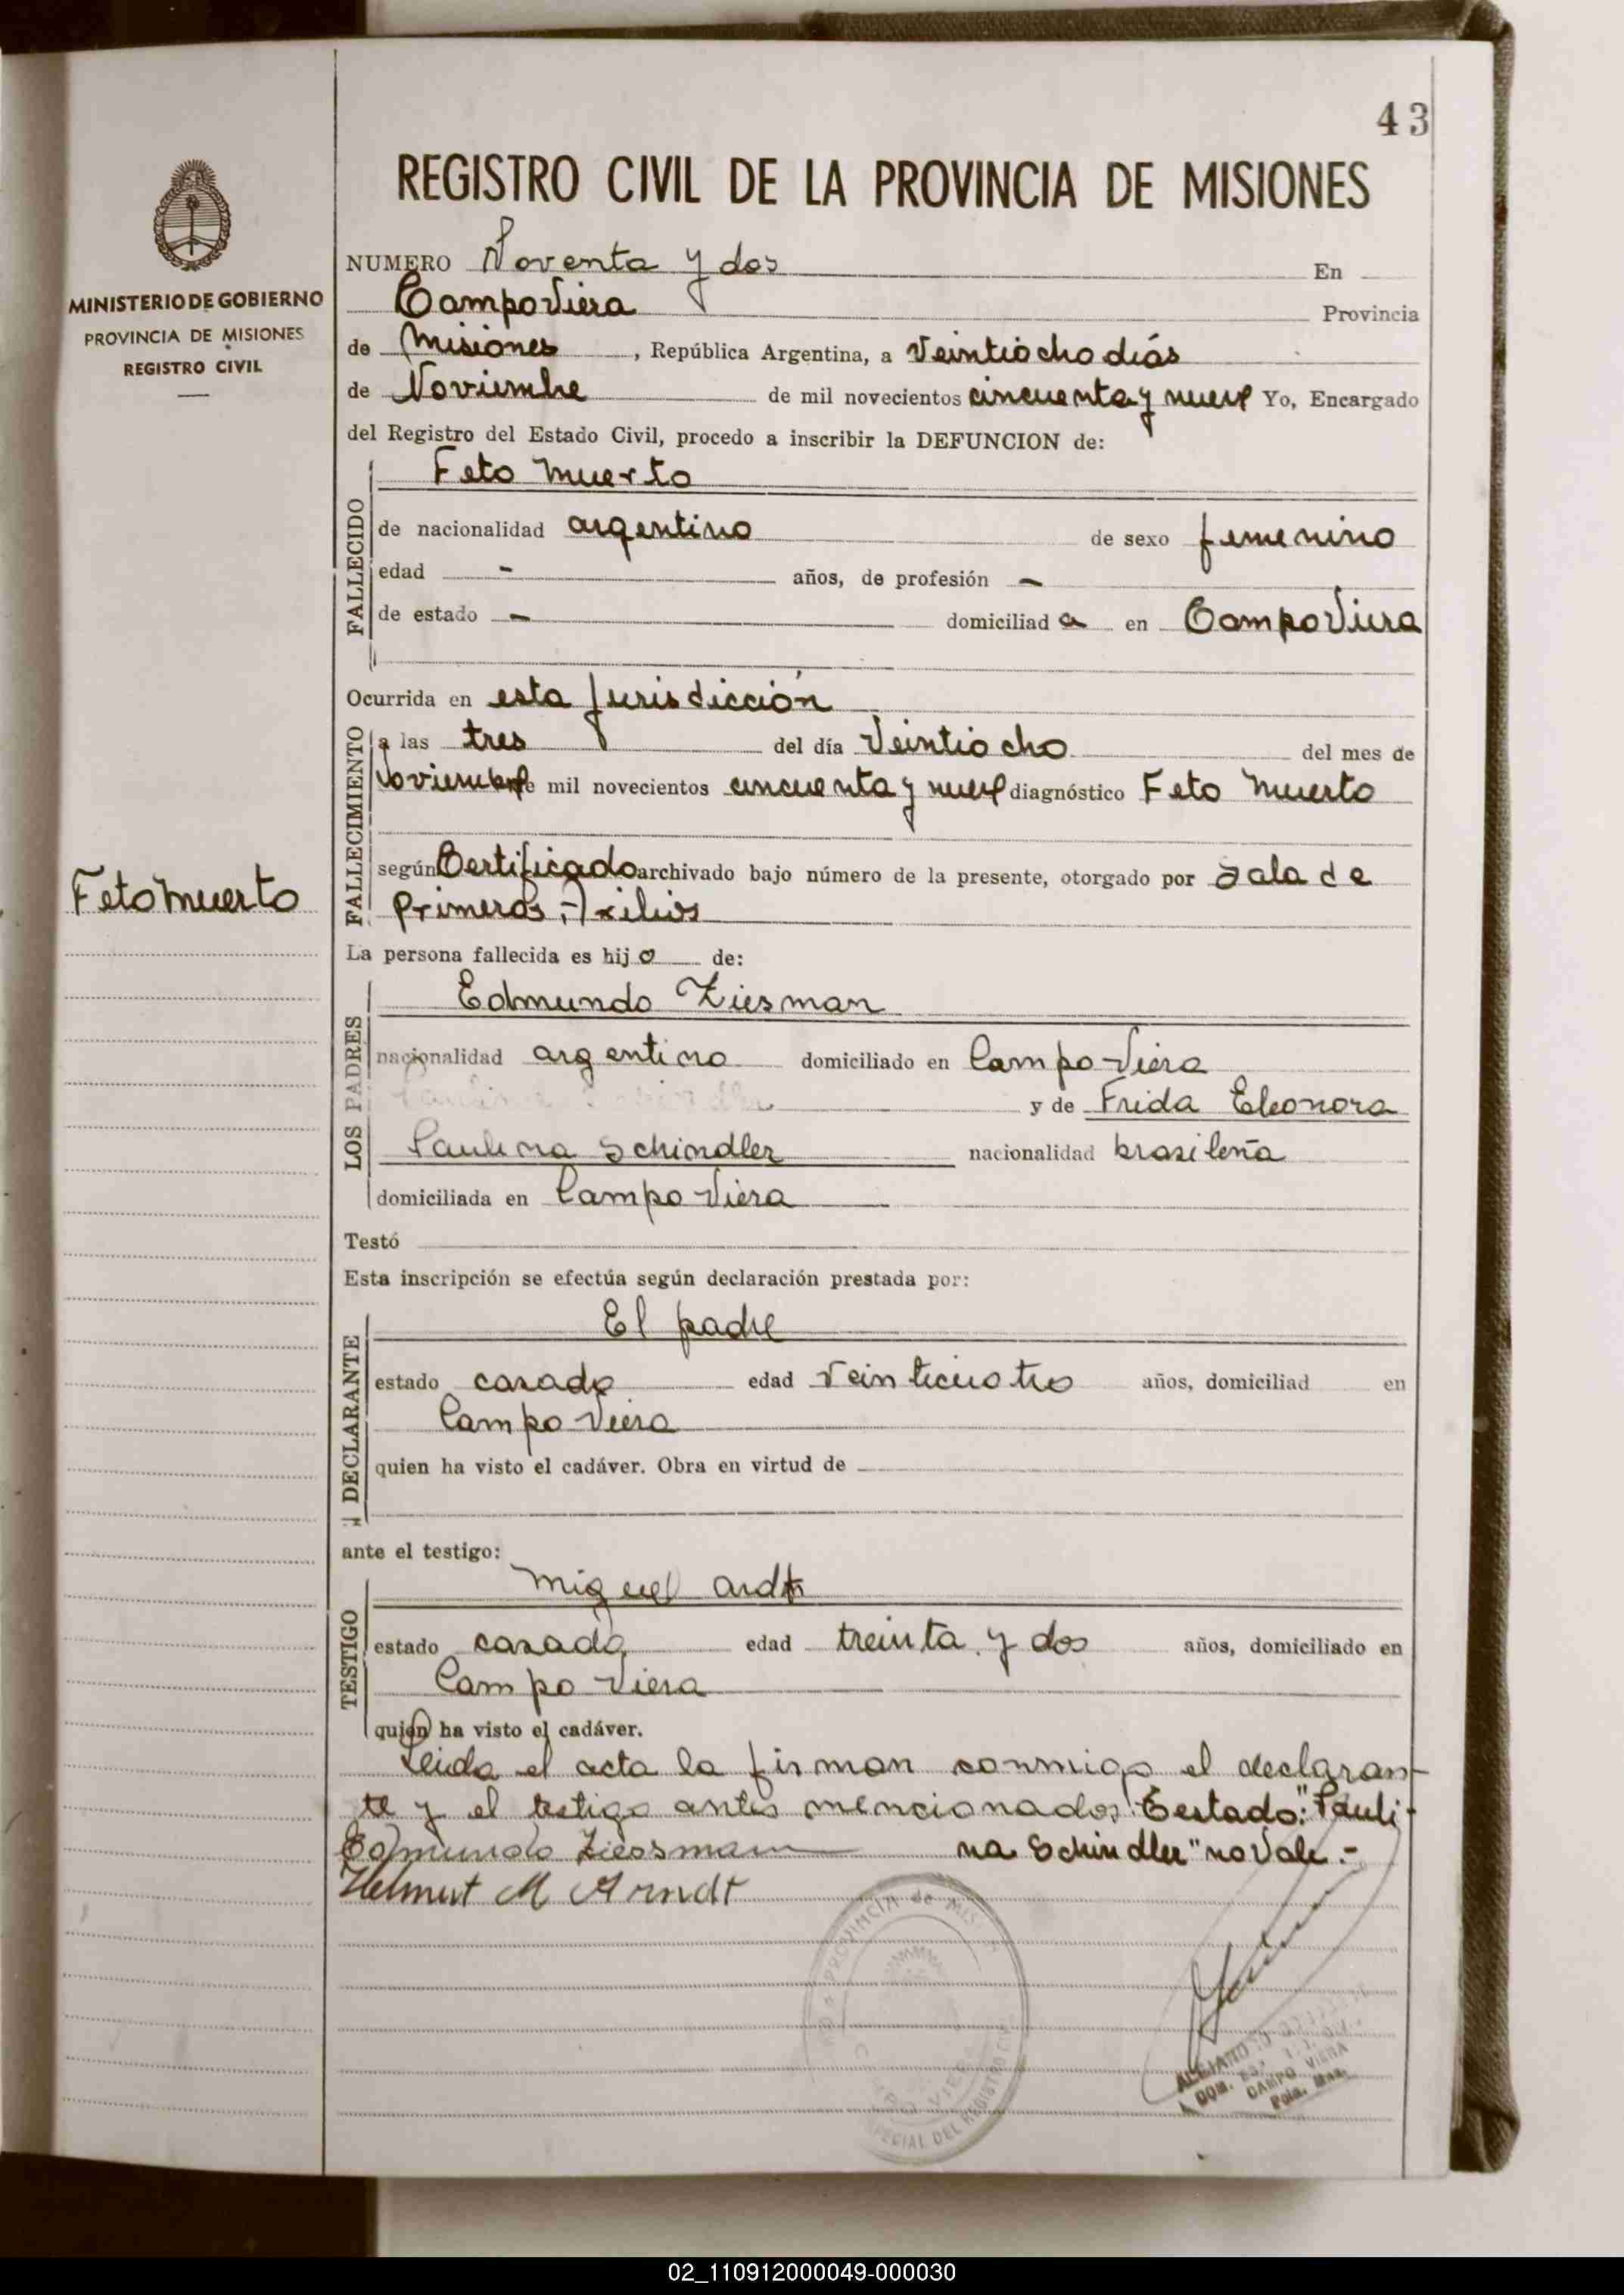 43
REGISTRO CIVIL DE LA PROVINCIA DE MISIONES
MINISTERIO DE GOBIERNO
PROVINCIA DE MISIONES
REGISTRO CIVIL
NUMERO Noventa y dos En
Campo Viera Provincia
de Misiones, República Argentina, a Veintiocho días
de Noviembre de mil novecientos cincuenta y nueve Yo, Encargado
del Registro del Estado Civil, procedo a inscribir la DEFUNCION de:
FALLECIDO
Feto Muerto
de nacionalidad argentino de sexo femenino
edad - años, de profesión -
de estado - domiciliad a en Campo Viera
Ocurrida en esta Jurisdicción
FALLECIMIENTO
a las tres del día Veintiocho del mes de
Noviembre de mil novecientos cincuenta y nueve diagnóstico Feto Muerto
según Certificado archivado bajo número de la presente, otorgado por Sala de
Primeros Axilios
Feto Muerto
La persona fallecida es hij o de:
LOS PADRES
Edmundo Ziesman
nacionalidad argentino domiciliado en Campo Viera
y de Frida Eleonora
Paulina Schindler nacionalidad brasileña
domiciliada en Campo Viera
Testó
Esta inscripción se efectúa según declaración prestada por:
DECLARANTE
El padre
estado casado edad Veinticuatro años, domiciliad en
Campo Viera
quien ha visto el cadáver. Obra en virtud de
ante el testigo:
TESTIGO
Miguel Ardt
estado casado edad treinta y dos años, domiciliado en
Campo Viera
quien ha visto el cadáver.
Leida el acta la firman conmigo el declaran-
te y el testigo antes mencionados: Testado: "Pauli-
Edmundo Ziessmann na Schindler" no Vale.-
Helmut M Arndt
PROVINCIA de MIS
CAMPO VIERA
DEL REGISTRO
CAMPO VIERA
Pcia. Mnes.
02_110912000049-000030